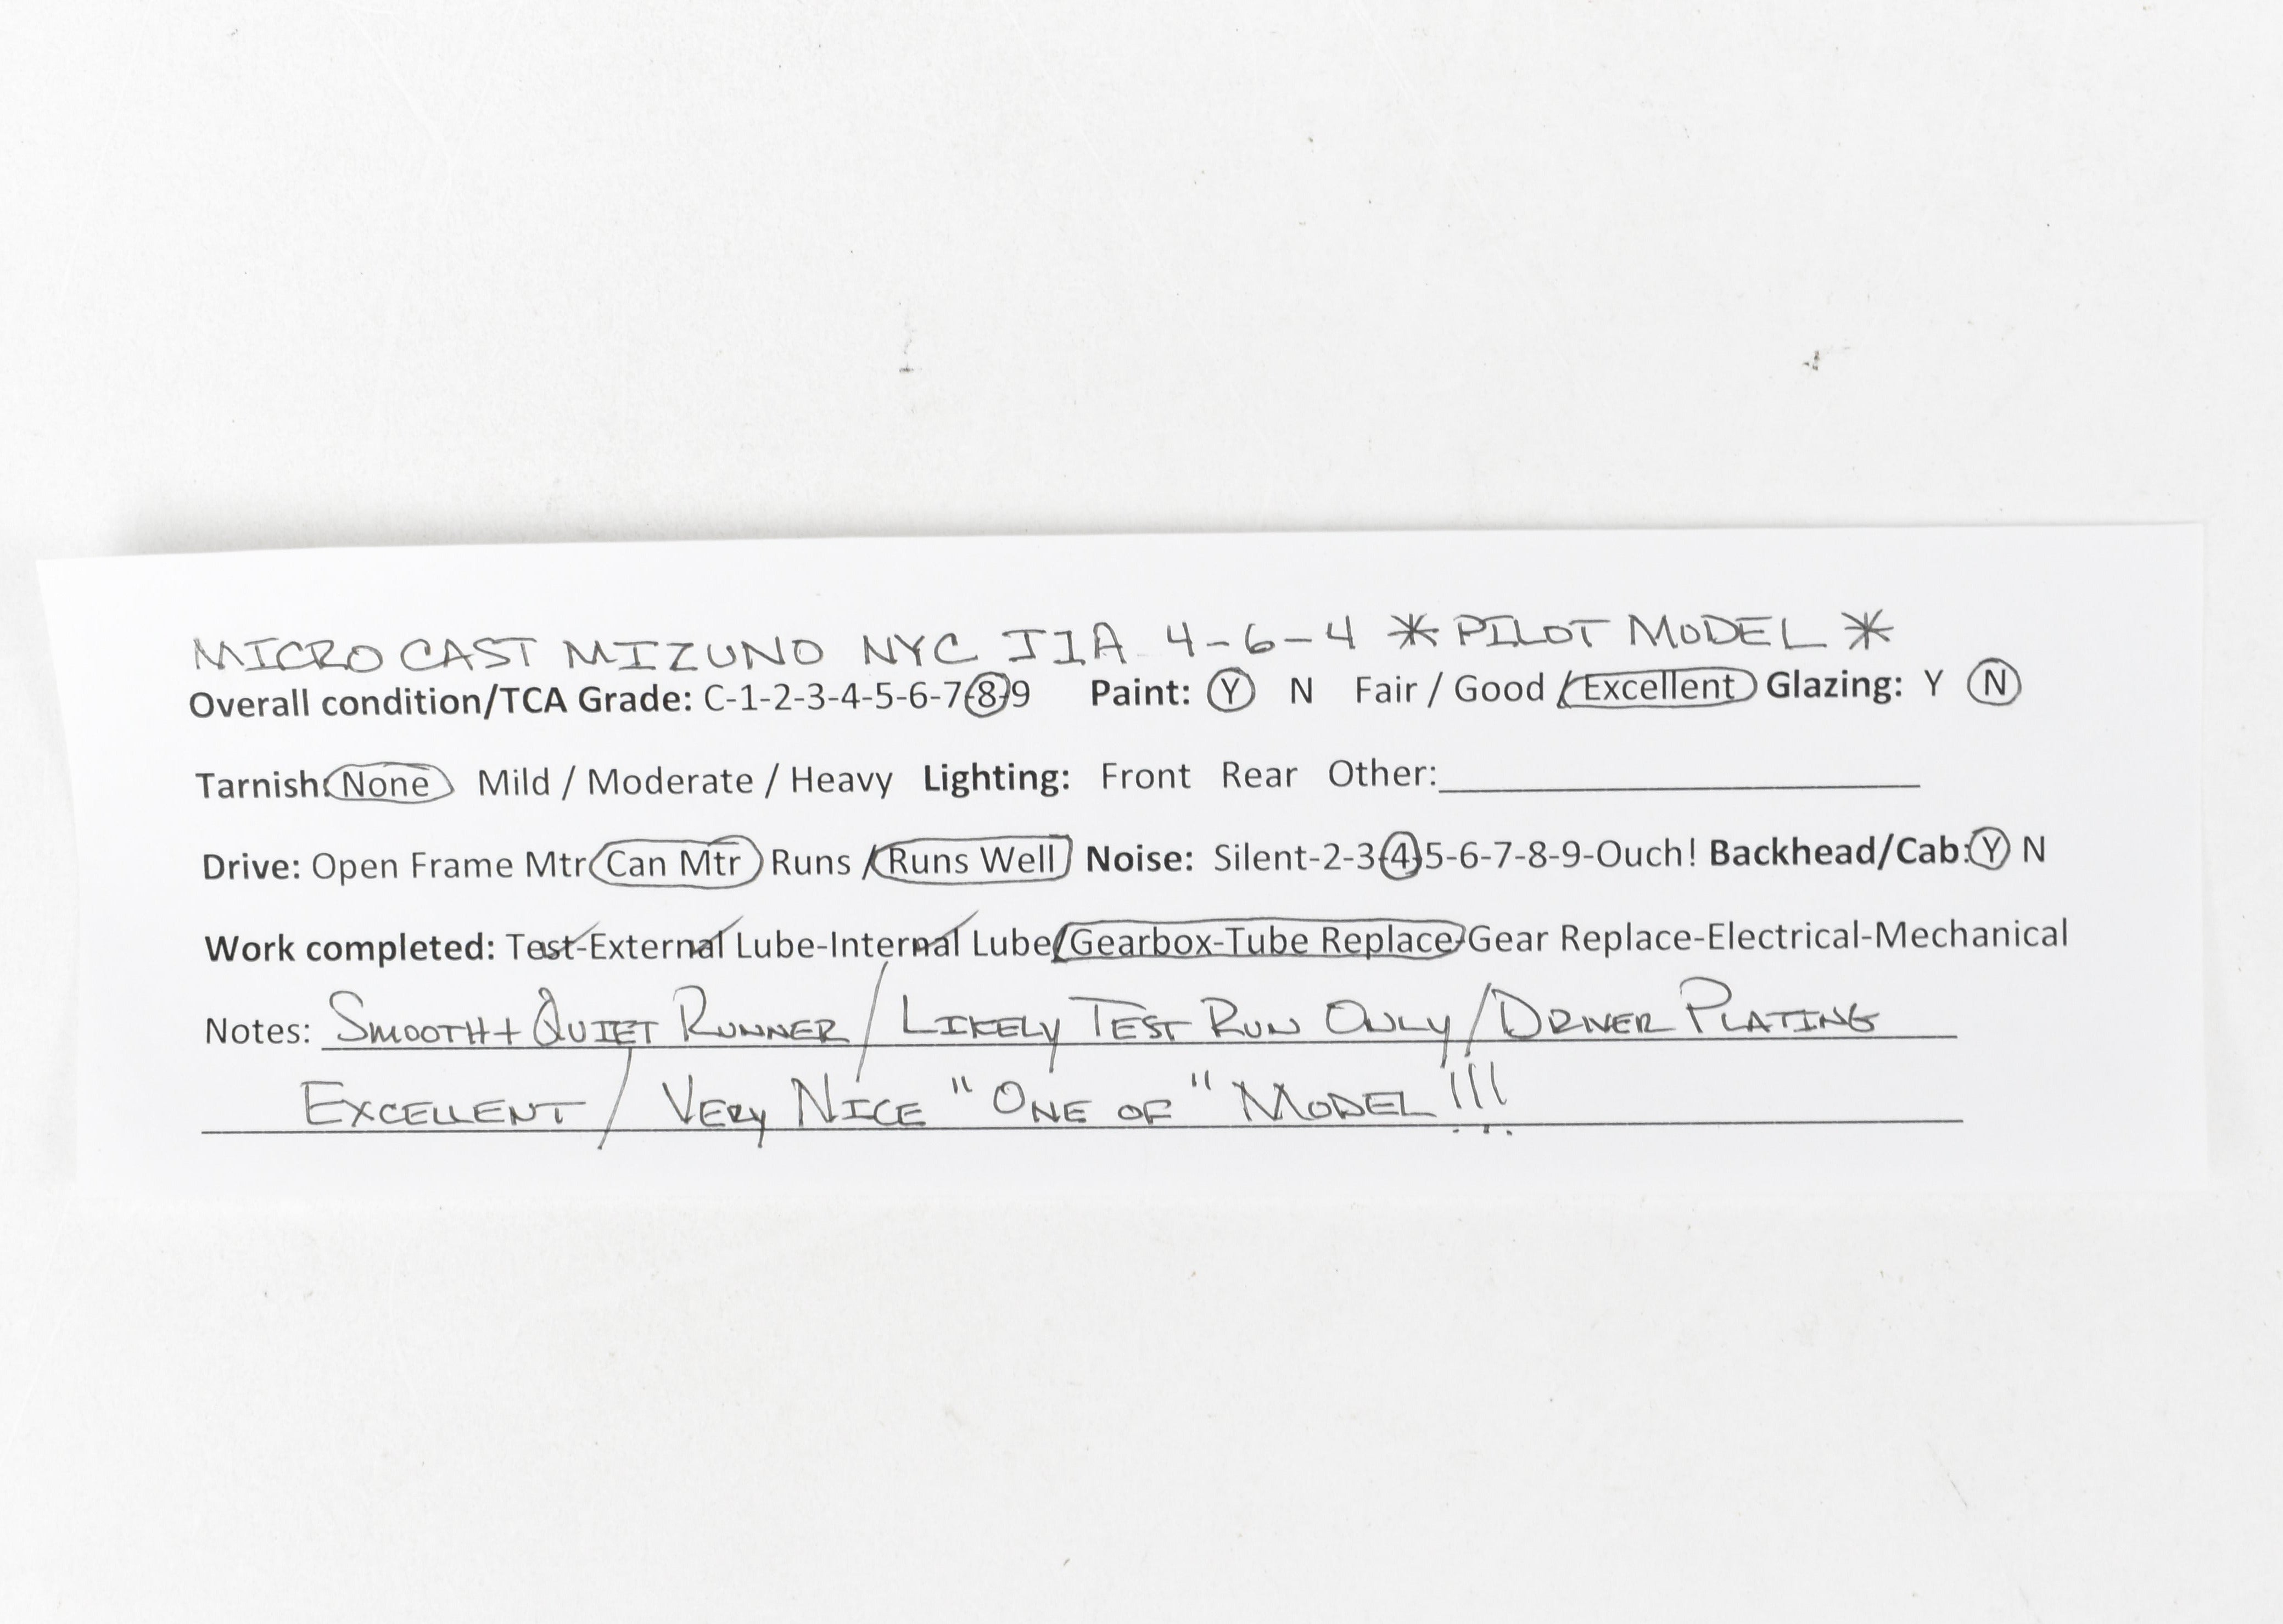 MICRO CAST MIZUNO NYC J1A 4-6-4 * PILOT MODEL *
Overall condition/TCA Grade: C-1-2-3-4-5-6-7-8-9 Paint: Y N Fair / Good / Excellent Glazing: Y N
Tarnish: None Mild / Moderate / Heavy Lighting: Front Rear Other:
Drive: Open Frame Mtr Can Mtr Runs / Runs Well Noise: Silent-2-3-4-5-6-7-8-9-Ouch! Backhead/Cab: Y N
Work completed: Test-External Lube-Internal Lube/Gearbox-Tube Replace-Gear Replace-Electrical-Mechanical
Notes: SMOOTH + QUIET RUNNER / LIKELY TEST RUN ONLY / DRIVER PLATING
EXCELLENT / VERY NICE "ONE OF" MODEL!!!